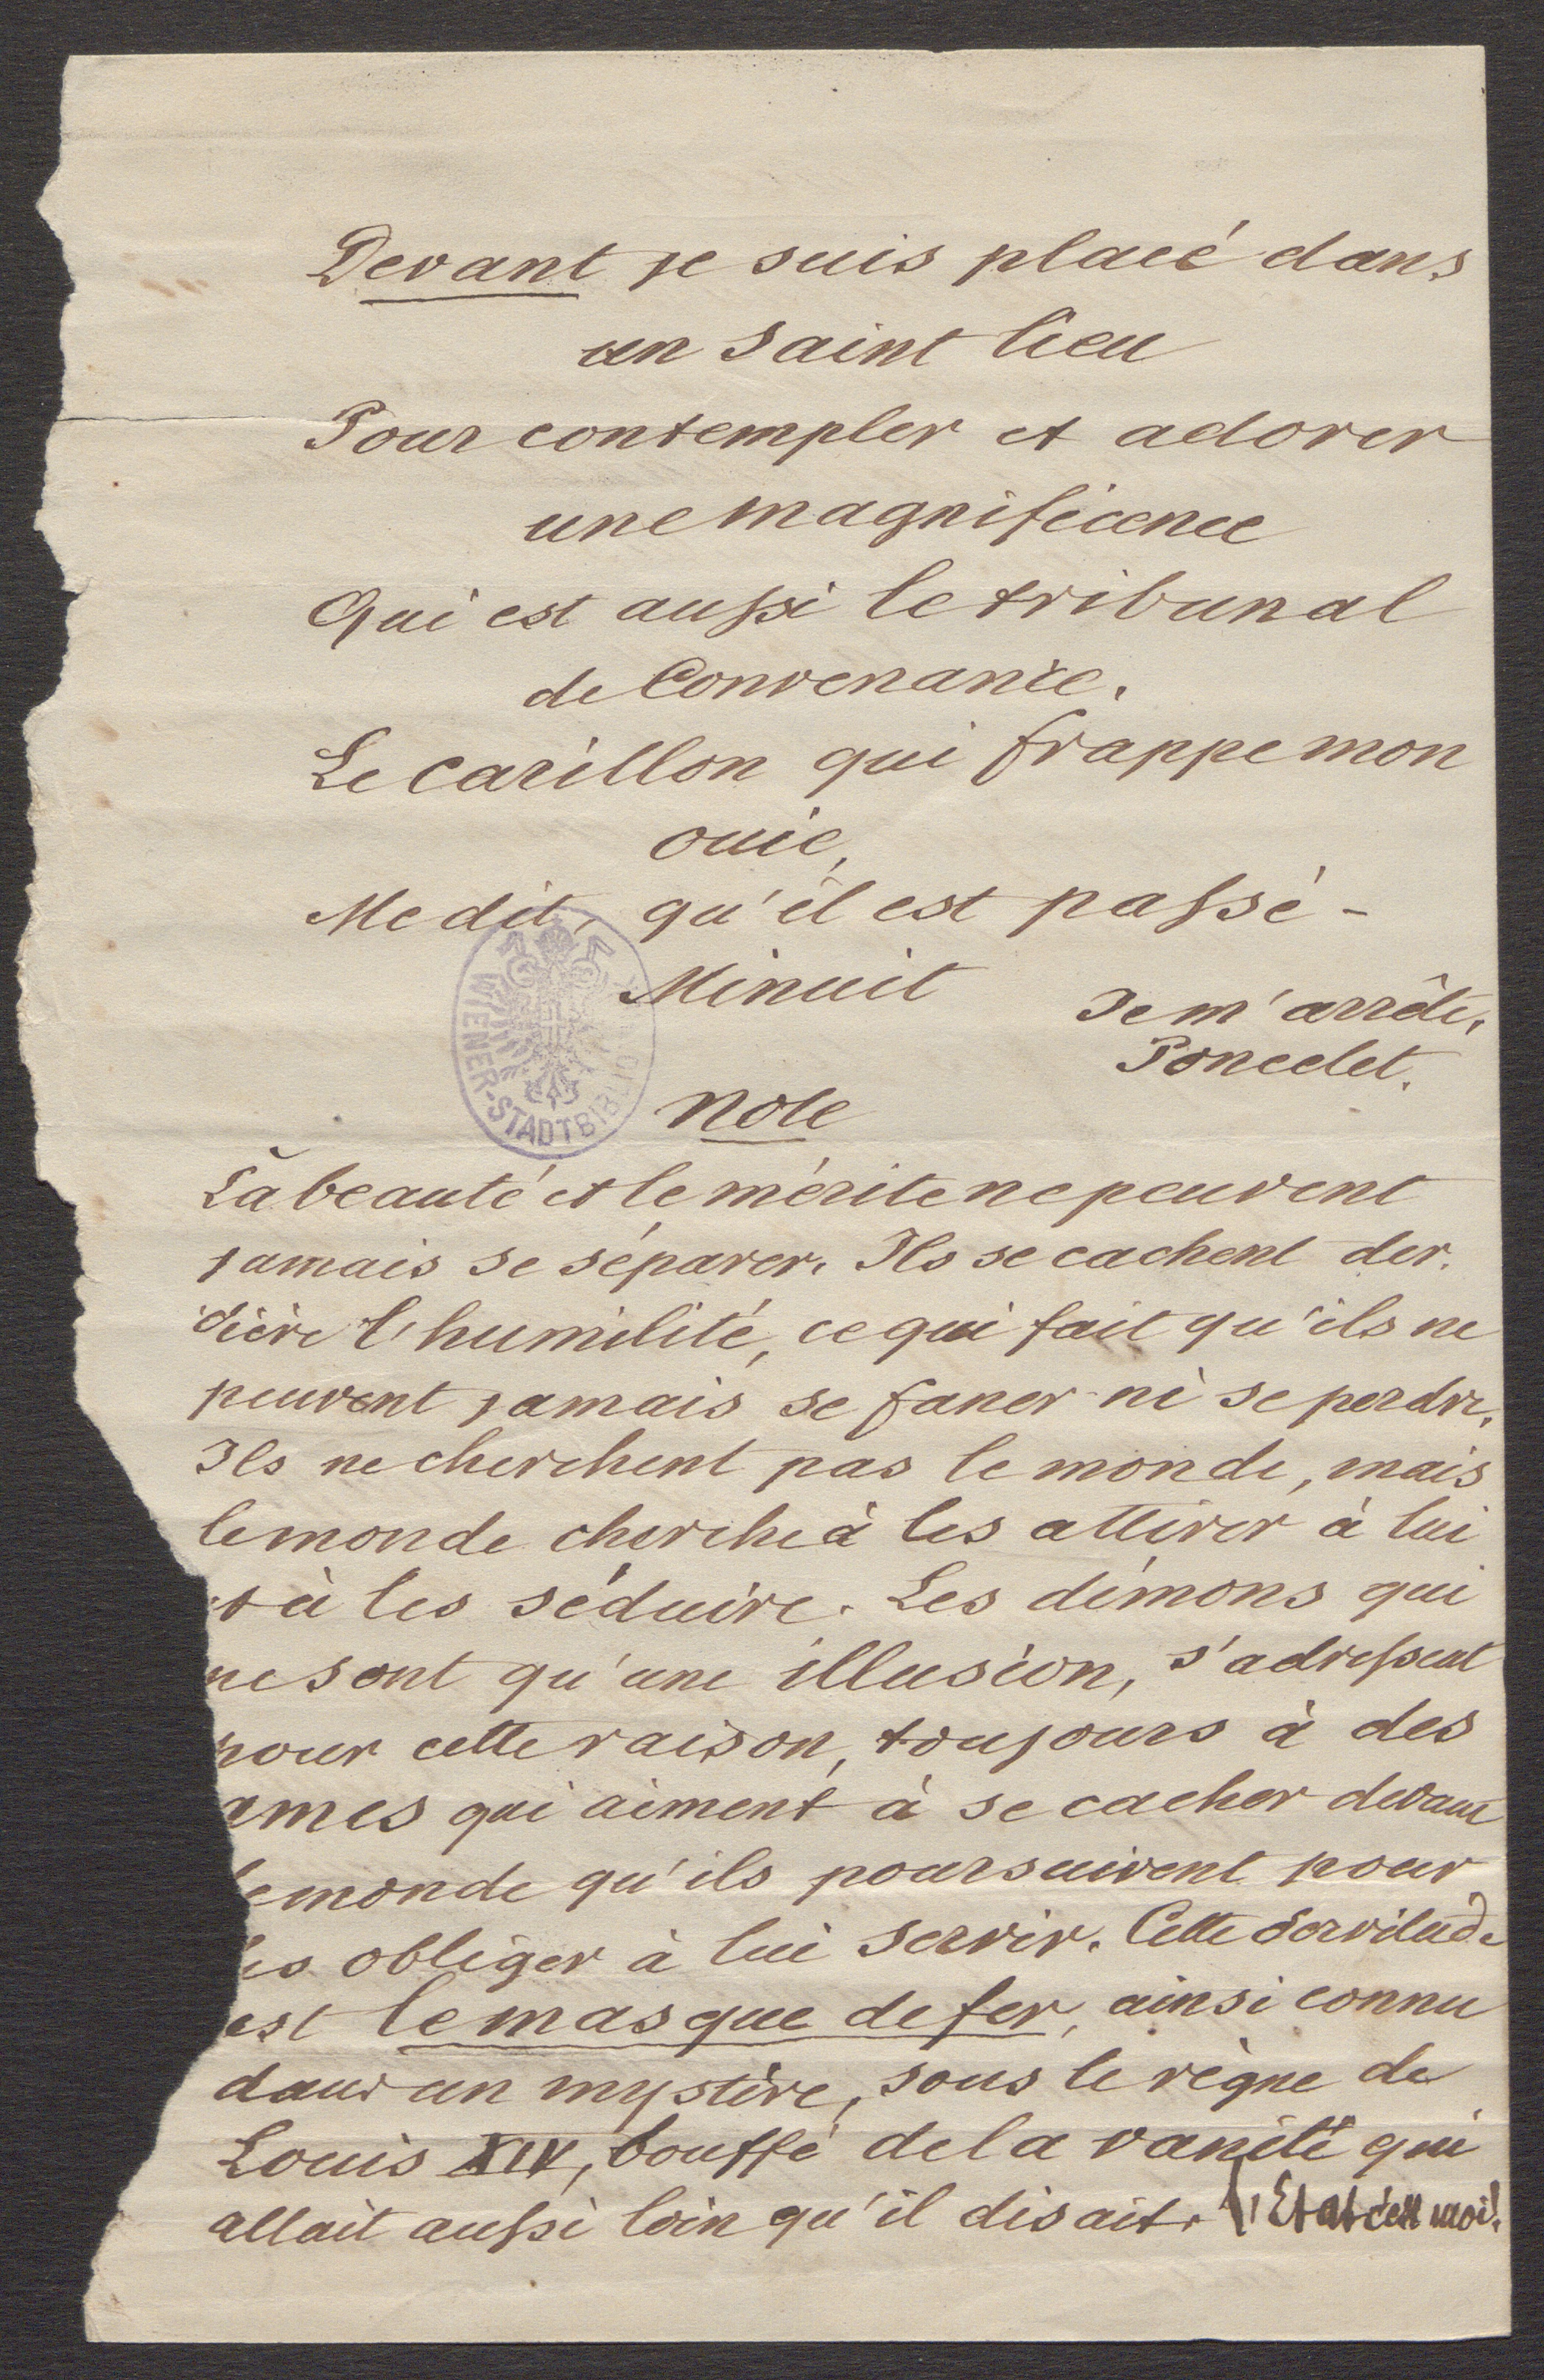 Devant je suis placé dans
un saint lieu
Pour contempler et adorer
une magnificence
Qui est aussi le tribunal
de Convenance.
Le carillon qui frappe mon
ouie,
Me dit, qu'il est passé -
Minuit
Je m'arrête,
Poncelet.
WIENER-STADTBIBLIO
Note
La beauté et le mérite ne peuvent
jamais se séparer. Ils se cachent der-
rière l'humilité, ce qui fait qu'ils ne
peuvent jamais se faner ni se perdre.
Ils ne cherchent pas le monde, mais
le monde cherche à les attirer à lui
et à les séduire. Les démons qui
ne sont qu'une illusion, s'adressent
pour cette raison, toujours à des
ames qui aiment à se cacher devant
le monde qu'ils poursuivent pour
les obliger à lui servir. Cette Servitude
est le masque de fer, ainsi connu
dans un mystère, sous le règne de
Louis XIV, bouffé de la vanité qui
allait aussi loin qu'il disait. l'Etat c'est moi!